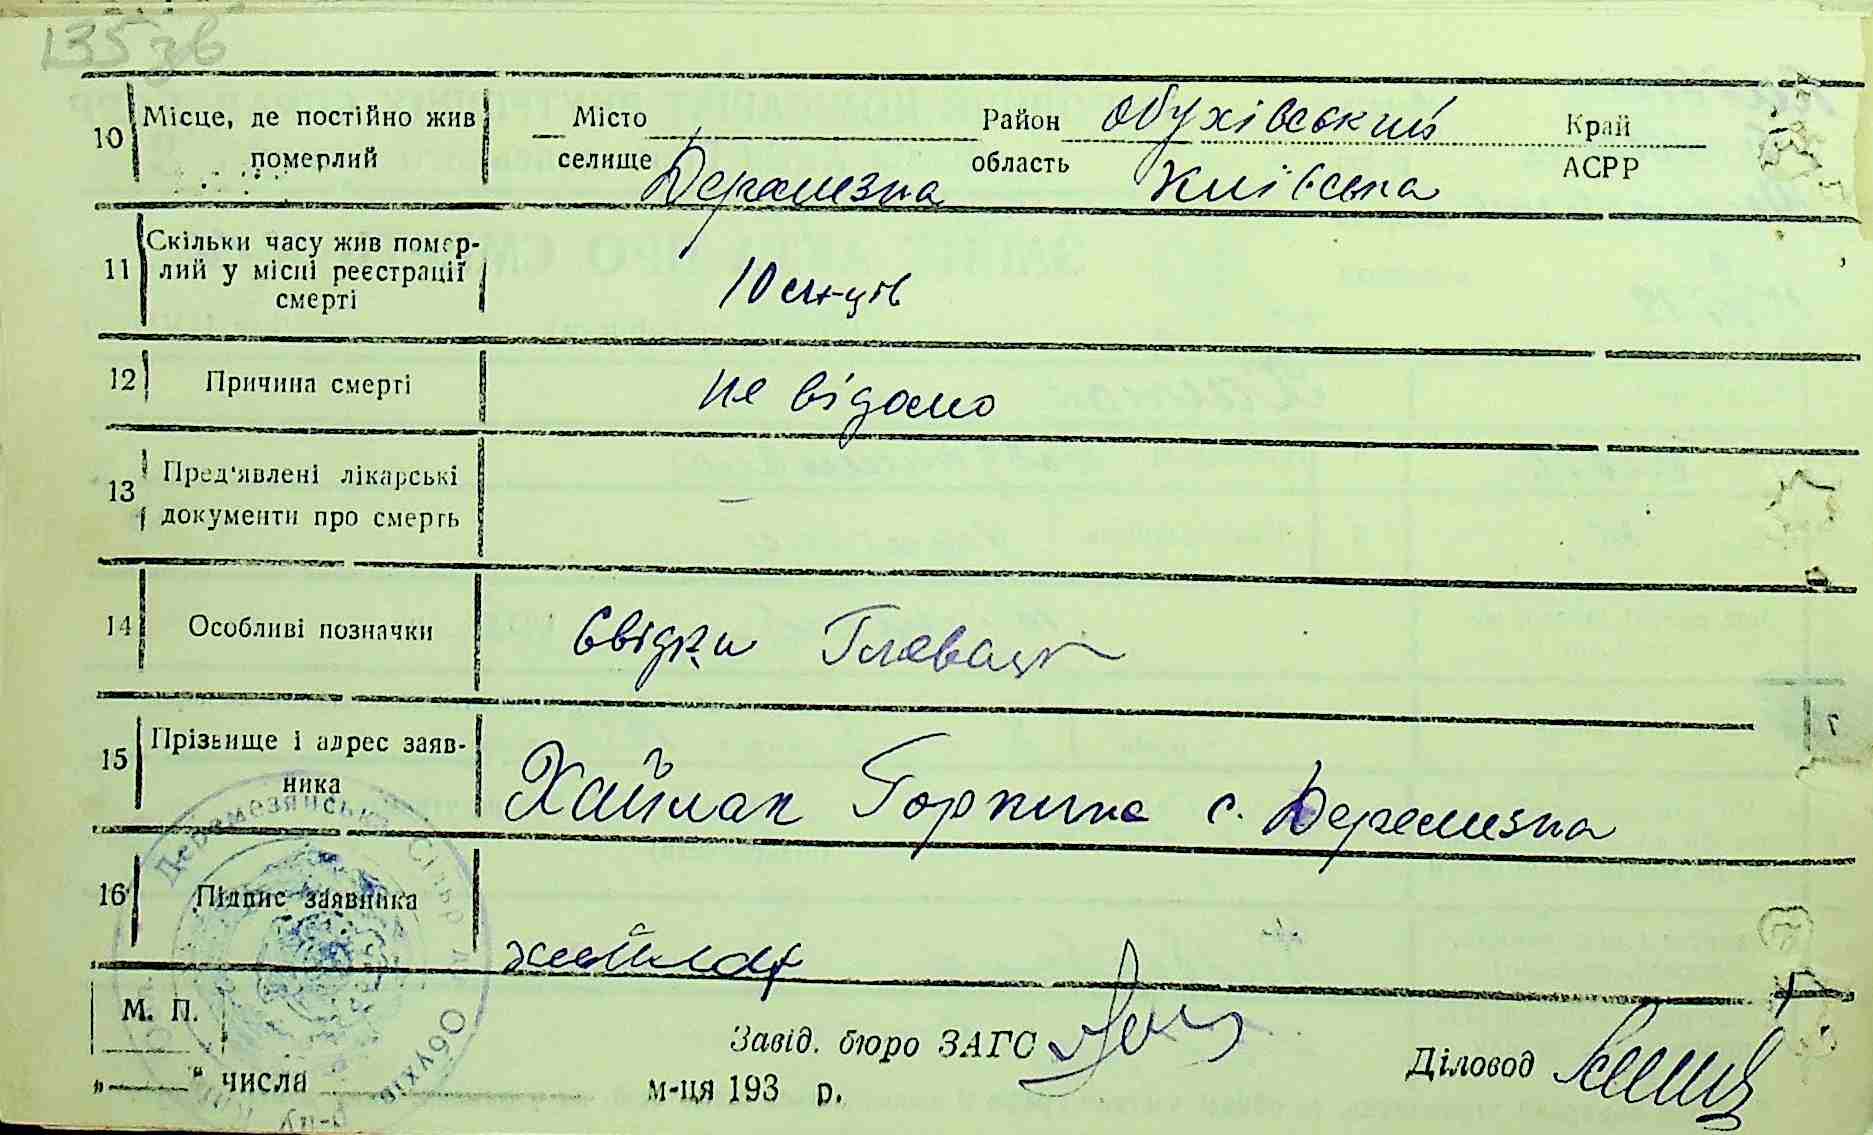 135 зв
10 Місце, де постійно жив Місто Район Обухівський Край
померлий селище Деремезна область Київська АСРР
Скільки часу жив помер-
11 лий у місці реєстрації 10 м-ців
смерті
12 Причина смерті не відомо
Пред'явлені лікарські
13 —
документи про смерть
14 Особливі позначки Свідки
Прізвище і адрес заяв-
15 ника Хайлак Горпина с. Деремезна
16 Підпис заявника Хайлак
М. П.
Завід. бюро ЗАГС Діловод
„ “ числа м-ця 193 р.
Деремезянська Сільр
Обухів
р-ну